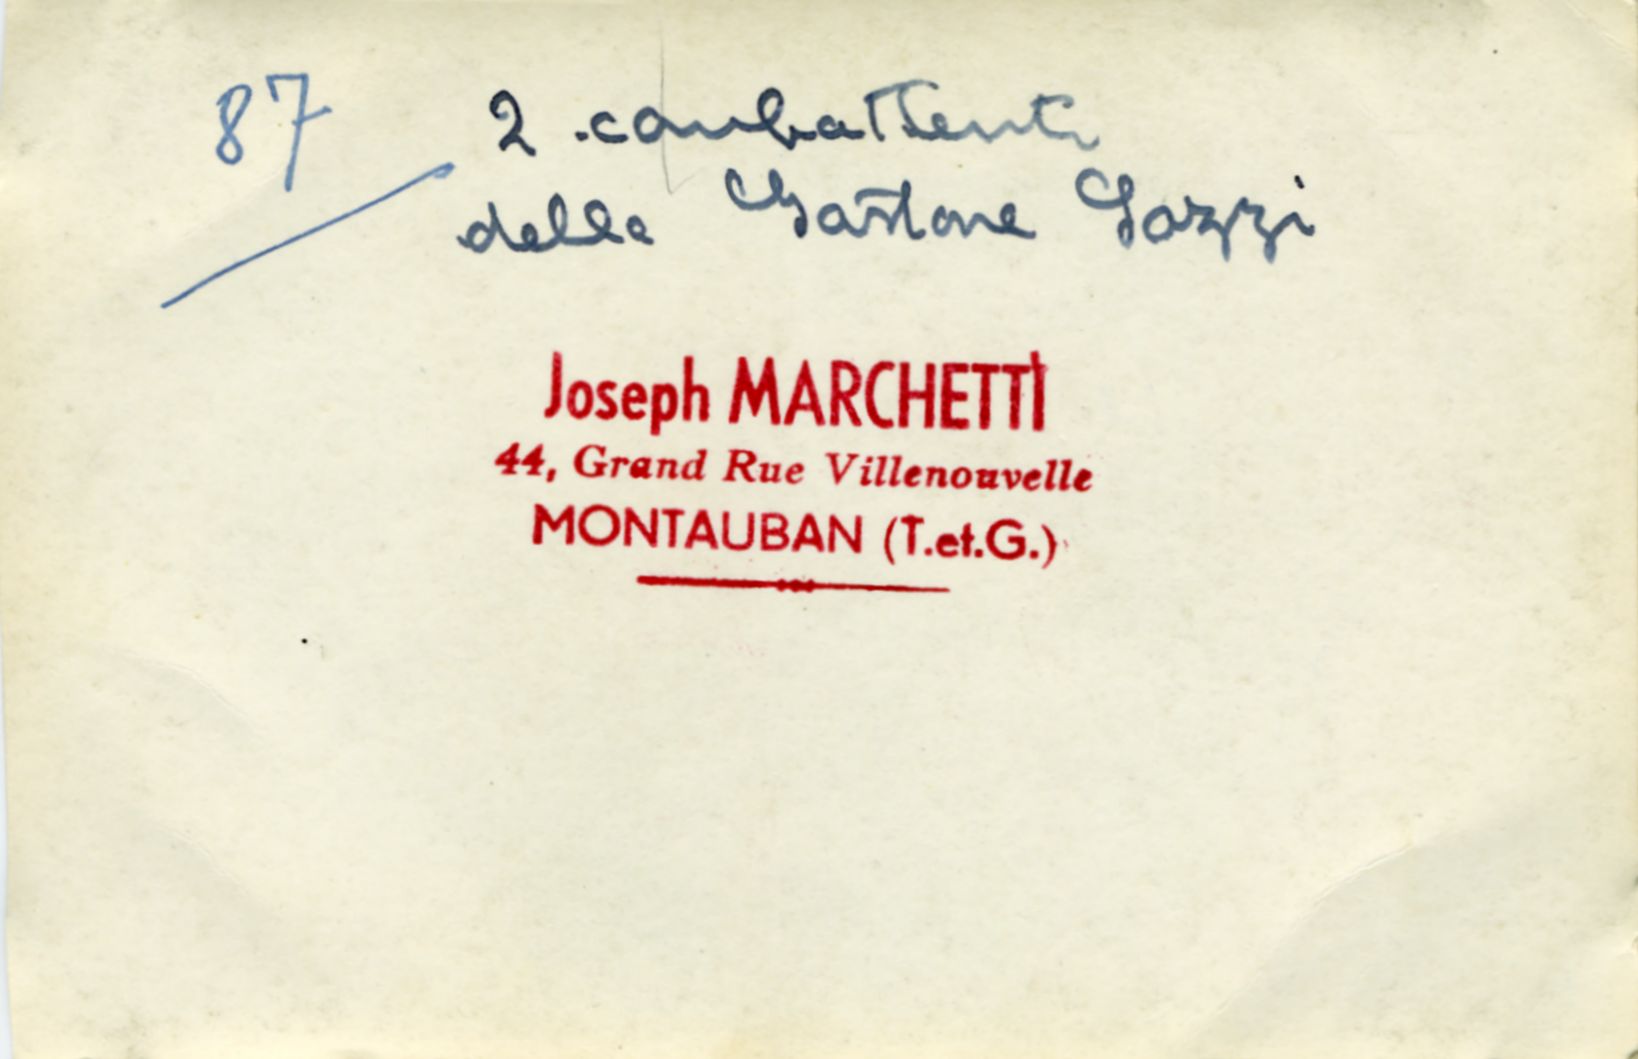 87
2 combattenti
della Gastone Sozzi
Joseph MARCHETTI
44, Grand Rue Villenouvelle
MONTAUBAN (T.et.G.)